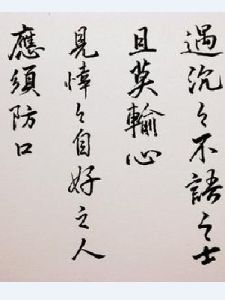 遇沉々不語之士
且莫輸心
見悻々自好之人
應須防口